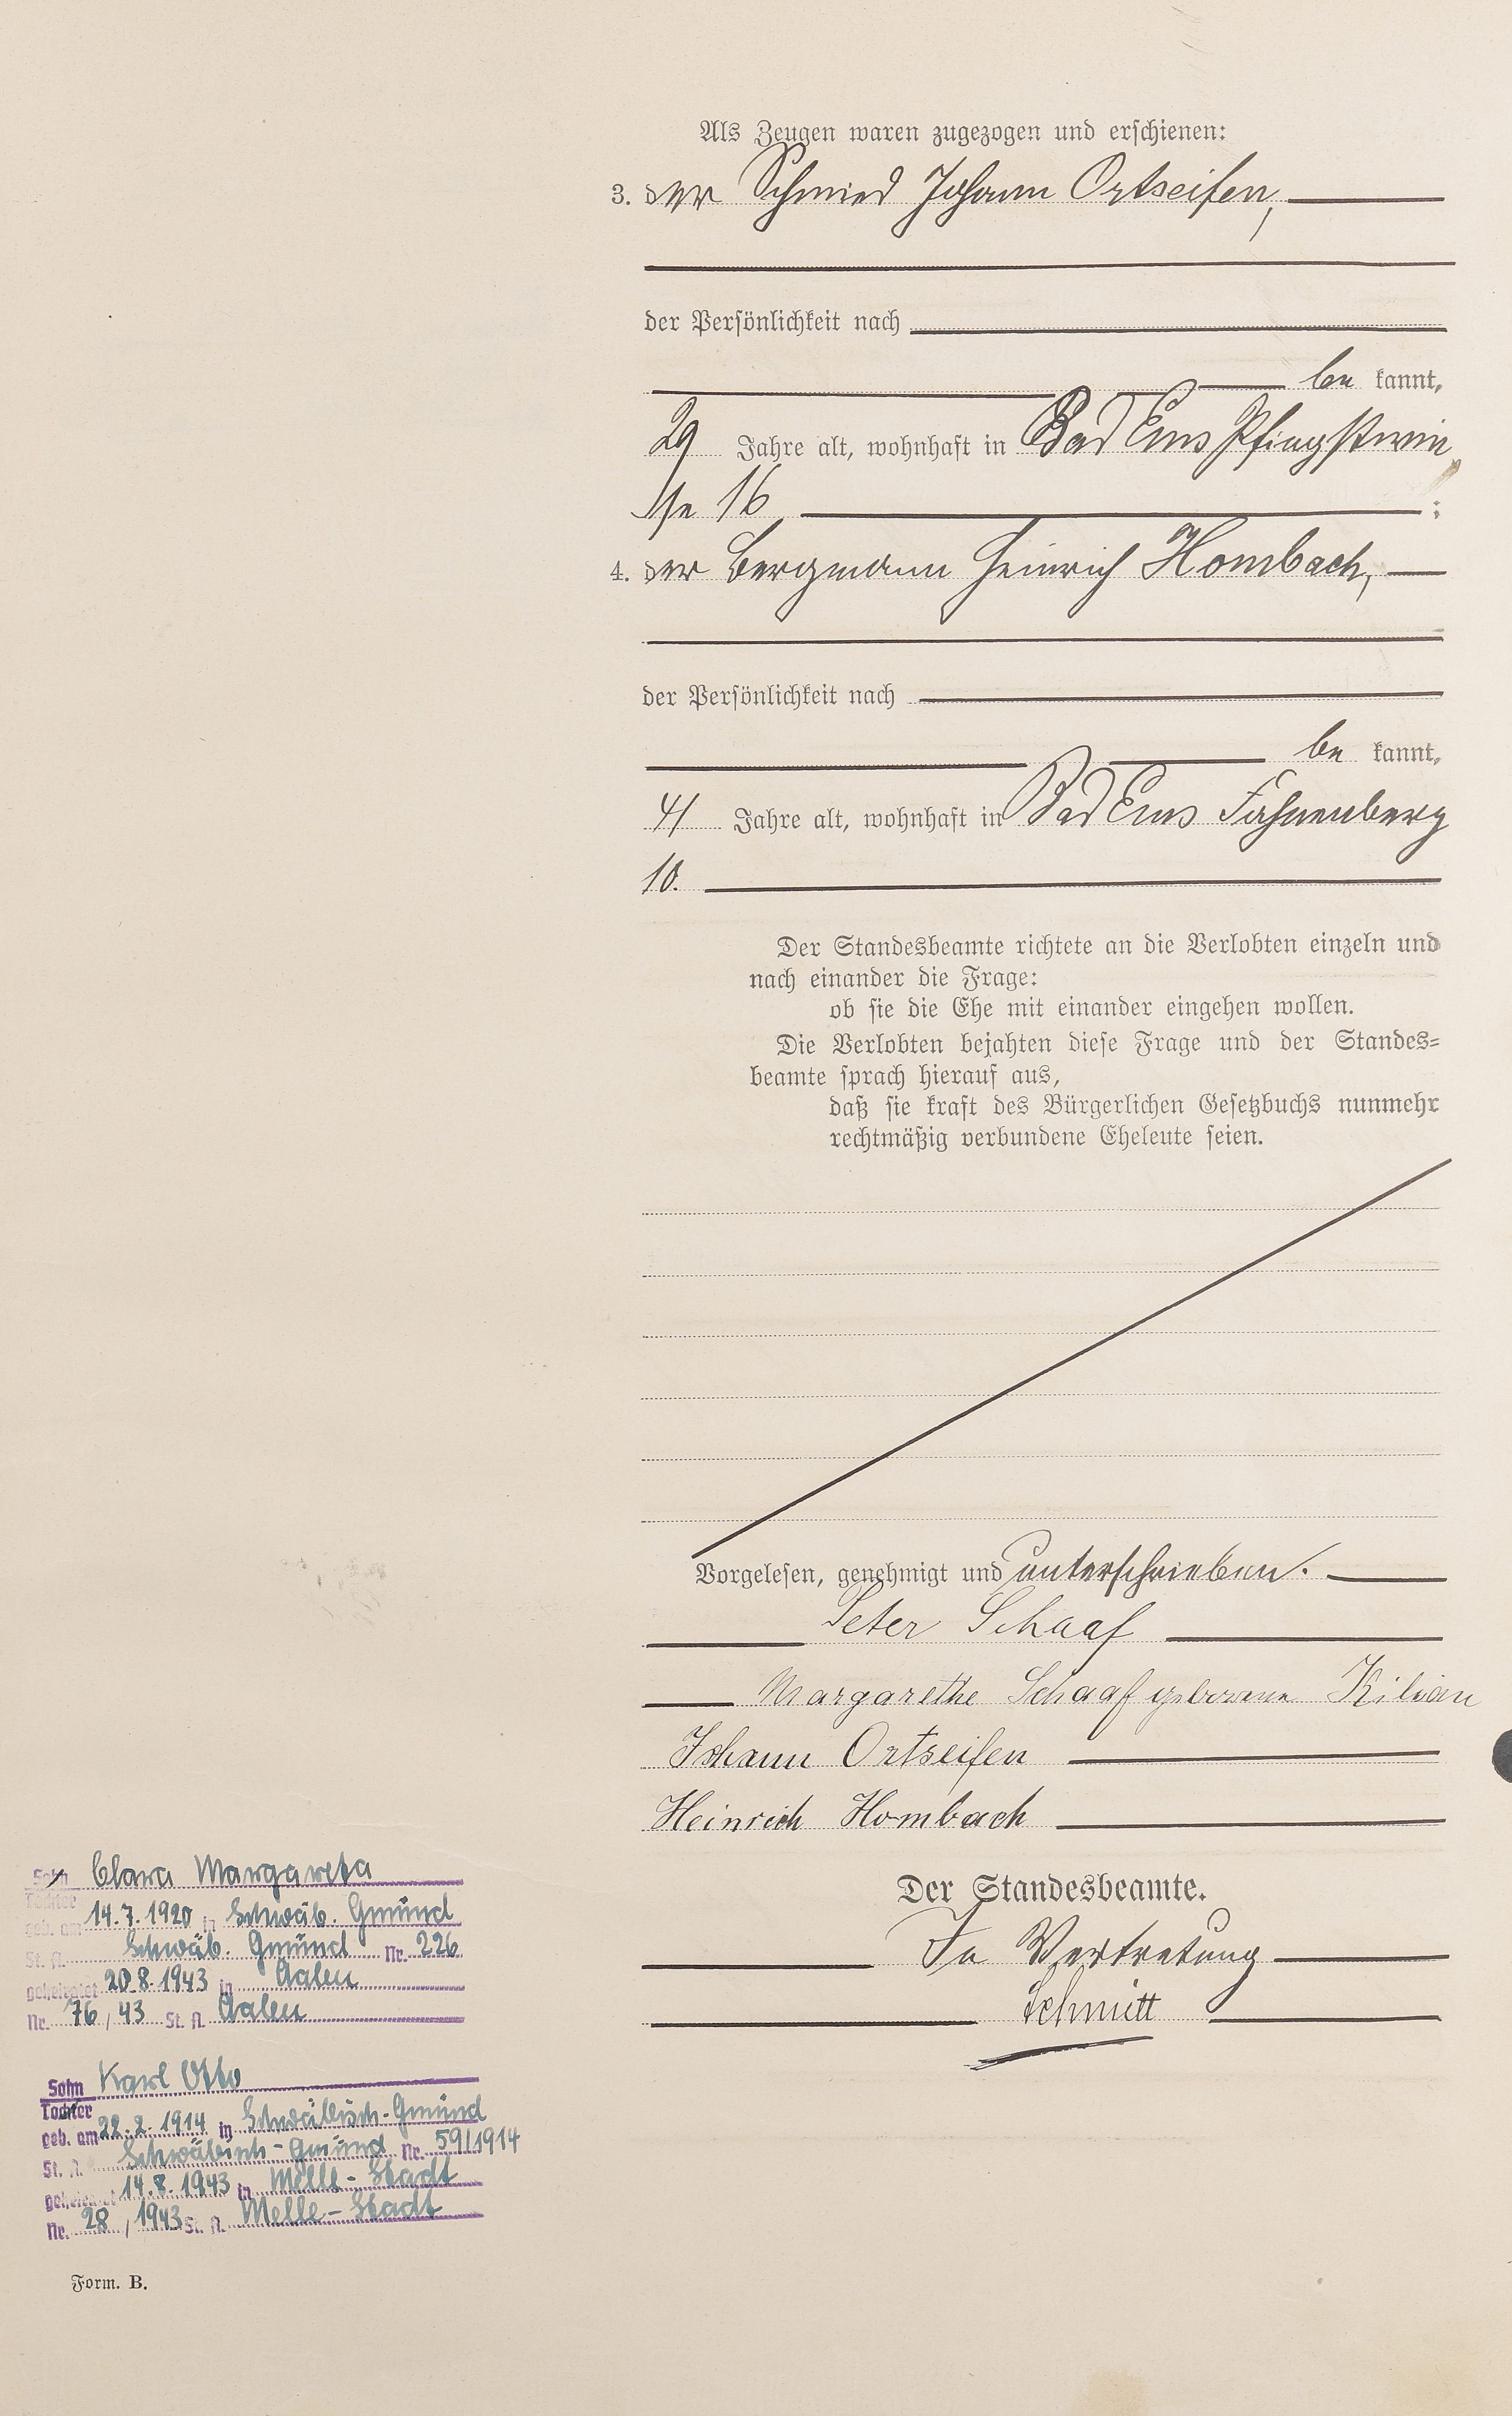 Als Zeugen waren zugezogen und erschienen:
3. der Schmied Johann Ortseifen,
der Persönlichkeit nach
be kannt,
29 Jahre alt, wohnhaft in Bad Ems Pfingstwie
se 16 ;
4. der Bergmann Heinrich Hombach,
der Persönlichkeit nach
be kannt,
41 Jahre alt, wohnhaft in Bad Ems Fahnenberg
10.
Der Standesbeamte richtete an die Verlobten einzeln und
nach einander die Frage:
ob sie die Ehe mit einander eingehen wollen.
Die Verlobten bejahten diese Frage und der Standes=
beamte sprach hierauf aus,
daß sie kraft des Bürgerlichen Gesetzbuchs nunmehr
rechtmäßig verbundene Eheleute seien.
Vorgelesen, genehmigt und unterschrieben.
Peter Schaaf
Margarethe Schaaf geborene Kilian
Johann Ortseifen
Heinrich Hombach
Der Standesbeamte.
In Vertretung
Schmitt
Sohn Clara Margareta
Tochter
geb. am 14.7.1920 in Schwäb. Gmünd
St. A. Schwäb. Gmünd Nr. 226
geheiratet 20.8.1943 in Aalen
Nr. 76/43 St. A. Aalen
Sohn Karl Otto
Tochter
geb. am 22.2.1914 in Schwäbisch-Gmünd
St. A. Schwäbisch-Gmünd Nr. 59/1914
geheiratet 14.8.1943 in Melle-Stadt
Nr. 28/1943 St. A. Melle-Stadt
Form. B.